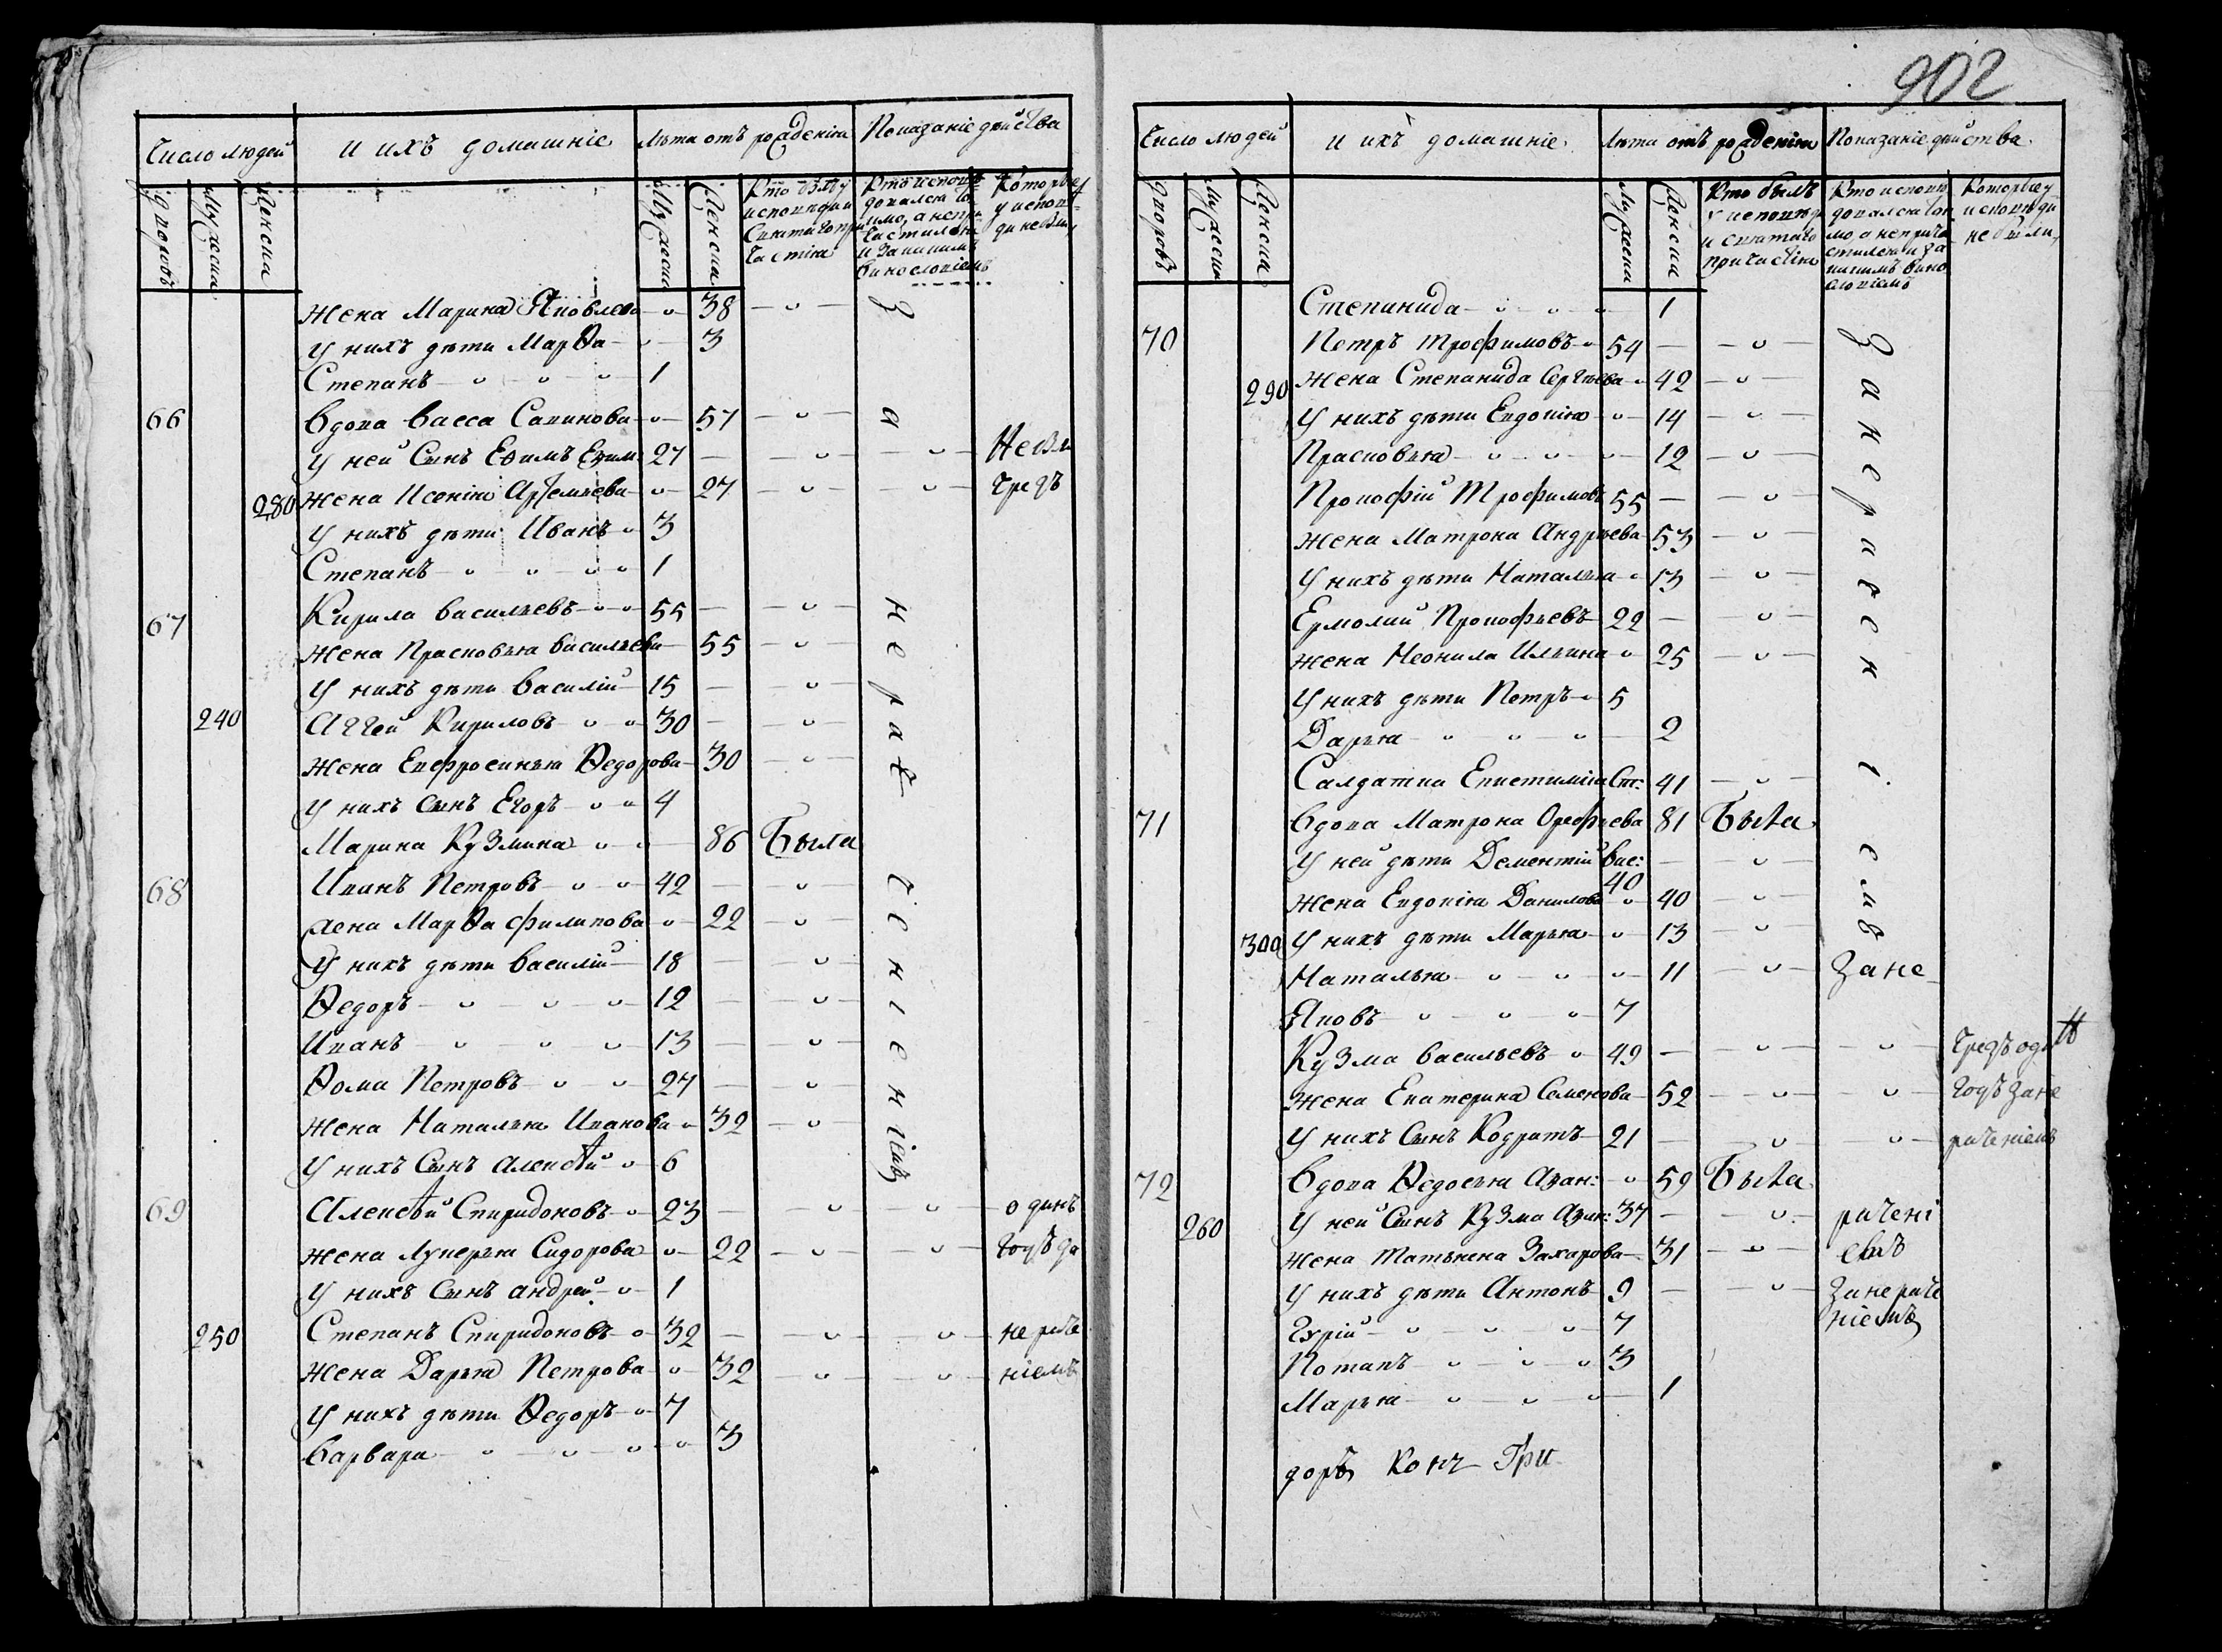 902
Число людей и ихъ домашніе Лѣта отъ рожденія Показаніе дѣйства
дворовъ Мужеска Женска Мужеска Женска Кто был у исповѣди и святаго причастія Кто исповѣдовался токмо, а не причастился и за какимъ винословіемъ Которые у исповѣди не были
Жена Марина Яковлева 38
У нихъ дѣти Марѳа 3
Степанъ 1
66 Вдова Васса Савинова 57
У ней Сынъ Еѳимъ Еѳим 27 Не был
280 Жена Ксенія Артемьева 27 чрезъ
У нихъ дѣти Иванъ 3
Степанъ 1
67 Кирила Васильевъ 55
Жена Прасковья Васильева 55
У нихъ дѣти Василій 15
240 Аггей Кириловъ 30
Жена Евфросинья Ѳедорова 30
У нихъ Сынъ Егоръ 4
Марина Кузмина 86 Была
68 Иванъ Петровъ 42
Жена Марѳа Филипова 22
У нихъ дѣти Василій 18
Ѳедоръ 12
Иванъ 13
Ѳома Петровъ 27
Жена Наталья Иванова 32
У нихъ Сынъ Алексѣй 6
69 Алексѣй Спиридоновъ 23 одинъ
Жена Лукерья Сидорова 22 годъ за
У нихъ Сынъ Андрей 1
250 Степанъ Спиридоновъ 32 нераче
Жена Дарья Петрова 32 ніемъ
У нихъ дѣти Ѳедоръ 7
Варвара 3
Число людей и ихъ домашніе Лѣта отъ рожденія Показаніе дѣйства
дворовъ Мужеска Женска Мужеска Женска Кто былъ у исповѣди и святаго причастія Кто исповѣдовался токмо, а не причастился и за какимъ винословіемъ Которые у исповѣди не были
Степанида 1
70 Петръ Трофимовъ 54
290 Жена Степанида Сергѣева 42
У нихъ дѣти Евдокія 14
Прасковья 12
Прокофій Трофимовъ 55
Жена Матрона Андрѣева 53
У нихъ дѣти Наталья 13
Ермолай Прокофьевъ 22
Жена Неонила Ильина 25
У нихъ дѣти Петръ 5
Дарья 2
Салдатка Епистимія Спи: 41
71 Вдова Матрона Орефьева 81 Была
У ней дѣти Дементій Вас: 40
Жена Евдокія Данилова 40
300 У нихъ дѣти Марья 13
Наталья 11 Зане
Яковъ 7
Кузма Васильевъ 49 Чрезъ оди н
Жена Екатерина Семенова 52 годъ зане
У нихъ Сынъ Кодратъ 21 раченіемъ
72 Вдова Ѳедосья Аѳан: 59 Была
260 У ней Сынъ Кузма 37 рачені
Жена Татьяна Захарова 31 емъ
У нихъ дѣти Антонъ 9 Занераче
7 ніемъ
Потапъ 3
Марья 1
доръ Кон Гри